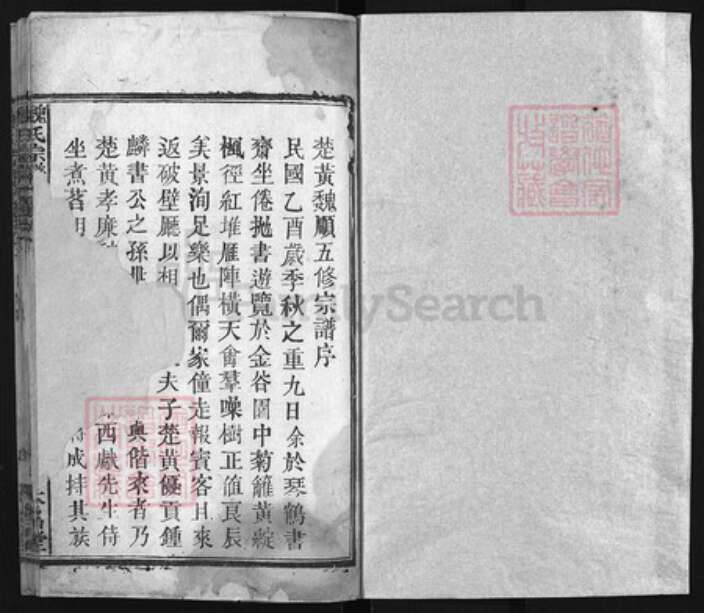 楚黃魏順五修宗譜序
民國乙酉歲季秋之重九日余於琴鶴書
齋坐倦拋書遊覽於金谷園中菊籬黃綻
楓徑紅堆雁陣橫天禽羣噪樹正值良辰
美景洵足樂也偶爾家僮走報賓客且來
返破壁廳以相夫子楚黃優貢鍾
麟書公之孫與偕來者乃
楚黃孝廉西獻先生侍
坐煮茗成持其族
魏氏宗
FamilySearch